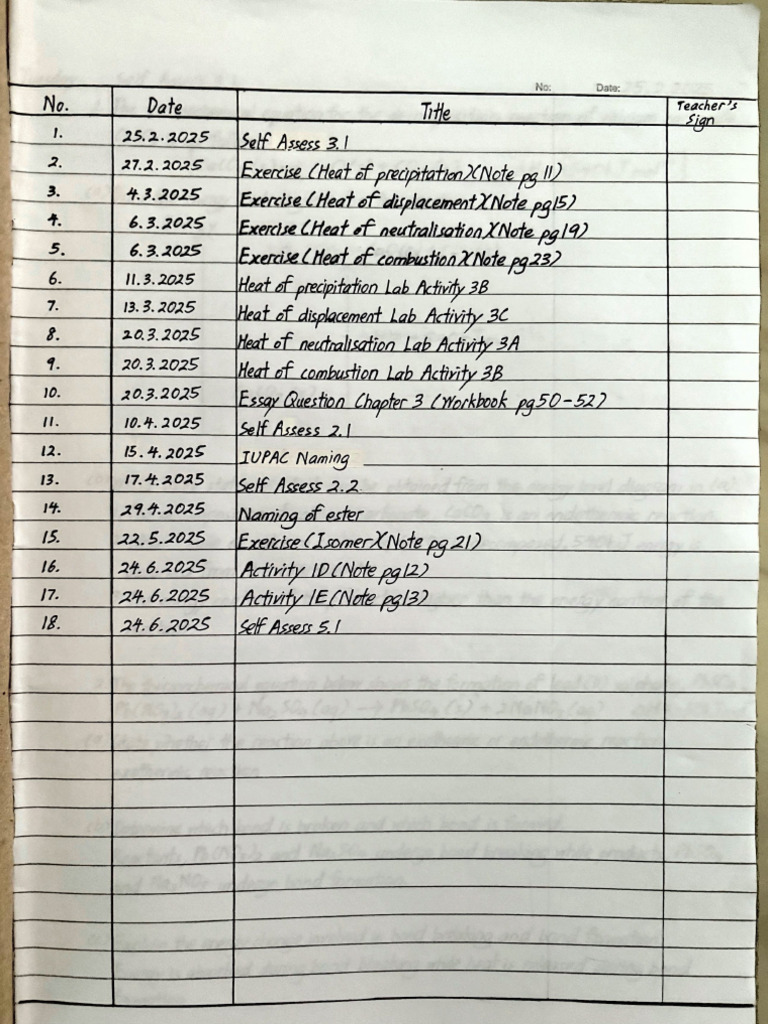 No: Date:
No. Date Title Teacher's Sign
1. 25.2.2025 Self Assess 3.1
2. 27.2.2025 Exercise (Heat of precipitation)(Note pg 11)
3. 4.3.2025 Exercise (Heat of displacement)(Note pg15)
4. 6.3.2025 Exercise (Heat of neutralisation)(Note pg19)
5. 6.3.2025 Exercise (Heat of combustion)(Note pg23)
6. 11.3.2025 Heat of precipitation Lab Activity 3B
7. 13.3.2025 Heat of displacement Lab Activity 3C
8. 20.3.2025 Heat of neutralisation Lab Activity 3A
9. 20.3.2025 Heat of combustion Lab Activity 3B
10. 20.3.2025 Essay Question Chapter 3 (Workbook pg50-52)
11. 10.4.2025 Self Assess 2.1
12. 15.4.2025 IUPAC Naming
13. 17.4.2025 Self Assess 2.2
14. 29.4.2025 Naming of ester
15. 22.5.2025 Exercise (Isomer)(Note pg 21)
16. 24.6.2025 Activity 1D (Note pg12)
17. 24.6.2025 Activity 1E (Note pg13)
18. 24.6.2025 Self Assess 5.1